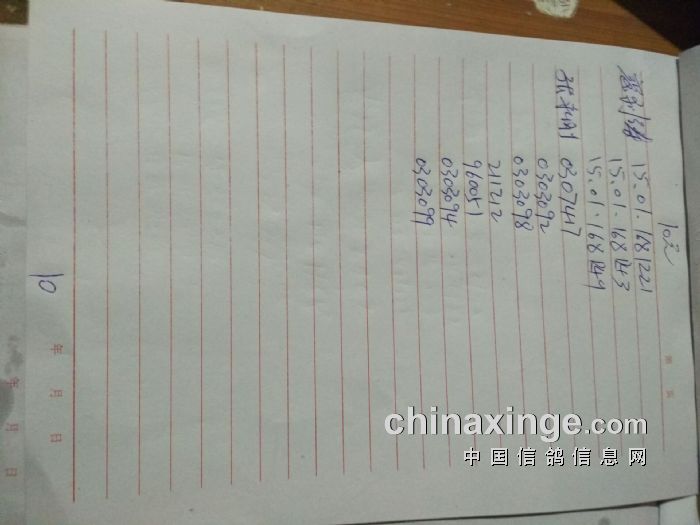 10元
15.01.1681221
15.01.168143
15.01.168149
0307447
0303092
0303098
211212
960051
0303094
0303099
10
第 页
年 月 日
年 月 日
chinaxinge.com
中国信鸽信息网